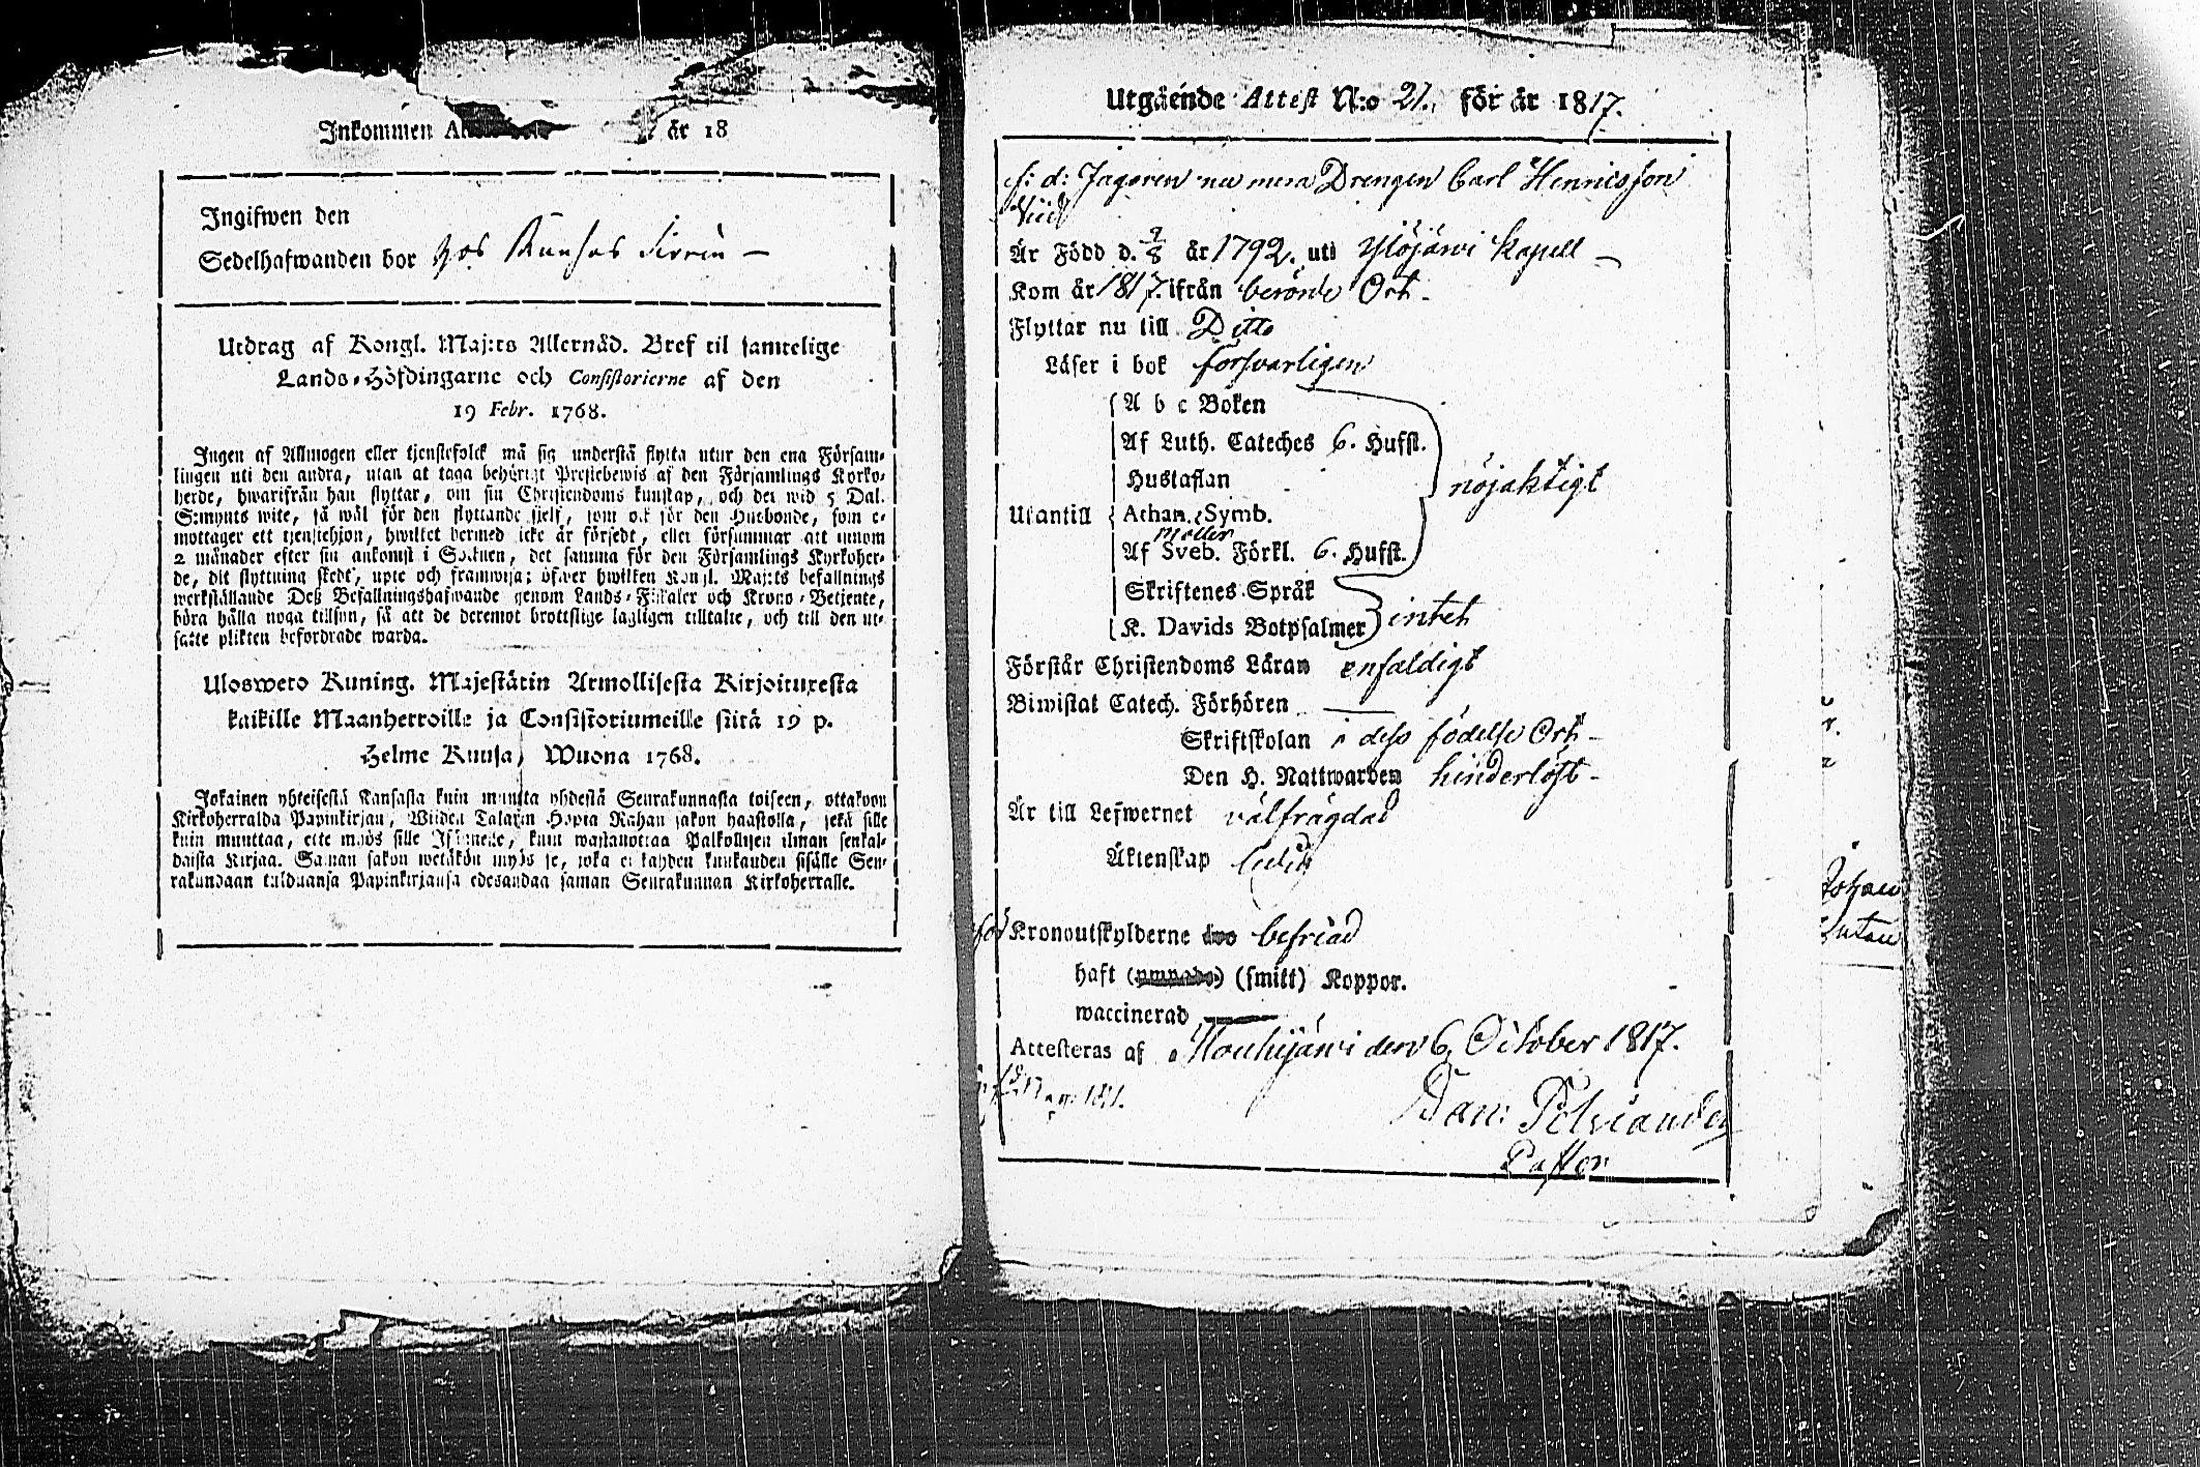 Inkommen år 18
Ingifwen den
Sedelhafwanden bor hos
Utdrag af Kongl. Maj:ts Allernåd. Bref til samtelige
Lands-Höfdingarne och Consistorierne af den
19 Febr. 1768.
Ingen af Allmogen eller tjenstefolck må sig understå flytta utur den ena Försam-
lingen uti den andra, utan at taga behörigt Prestebewis af den Församlings Kyrko-
herde, hwarifrån han flyttar, om sin Christendoms kunskap, och det wid 5 Dal.
S:mynts wite, så wäl för den flyttande sjelf, som ock för den Husbonde, som e-
mottager ett tjenstehjon, hwilket dermed icke är försedt, eller försummar att innom
2 månader efter sin ankomst i Socknen, det samma för den Församlings Kyrkoher-
de, dit flyttning skedt, upte och framwisa; öfwer hwilken Kongl. Maj:ts befallnings
werkställande Deß Befallningshafwande genom Lands-Fiskaler och Krono-Betjente,
böra hålla noga tillsyn, så att de deremot brottslige lagligen tilltalte, och till den ut-
satte plikten befordrade warda.
Ulosweto Kuning. Majestätin Armollisesta Kirjoituxesta
kaikille Maanherroille ja Consistoriumeille siitä 19 p.
Helme Kuusa, Wuona 1768.
Jokainen yhteisestä Kansasta kuin muutta yhdestä Seurakunnasta toiseen, ottakoon
Kirkoherralda Papinkirjan, Wiiden Talarin Hopia Rahan sakon haastolla, sekä sille
kuin muuttaa, ette myös sille Isännelle, kuin wastanottaa Palkollisen ilman senkal-
daista Kirjaa. Saman sakon wetäkön myös se, joka ei kahden kuukauden sisälle Seu-
rakundaan tulduansa Papinkirjansa edesandaa saman Seurakunnan Kirkoherralle.
Utgående Attest N:o 21. för år 1817.
f: d: Jägaren nu mera Drengen Carl Henricsson
Är Född d. år 1792. uti Ylöjärwi Kapell
Kom år 1817. ifrån berörde Ort.
Flyttar nu till Ditto
Läser i bok försvarligen
A b c Boken
Af Luth. Cateches 6. Hufst.
Hustaflan
nöjaktigt
Utantill Athan. Symb.
Af Sveb. Förkl. 6. Hufst.
Skriftenes Språk
K. Davids Botpsalmer intet
Förstår Christendoms Läran enfaldigt
Biwistat Catech. Förhören
Skriftskolan i dess födelse Ort
Den H. Nattwarden hinderlöst
Är till Lefwernet välfrägdad
Äktenskap ledig
för Kronoutskylderne befriad
haft (smitt) Koppor.
waccinerad
Attesteras af Mouhijärvi den 6. October 1817.
Dan: Polviander
Pastor
Johan